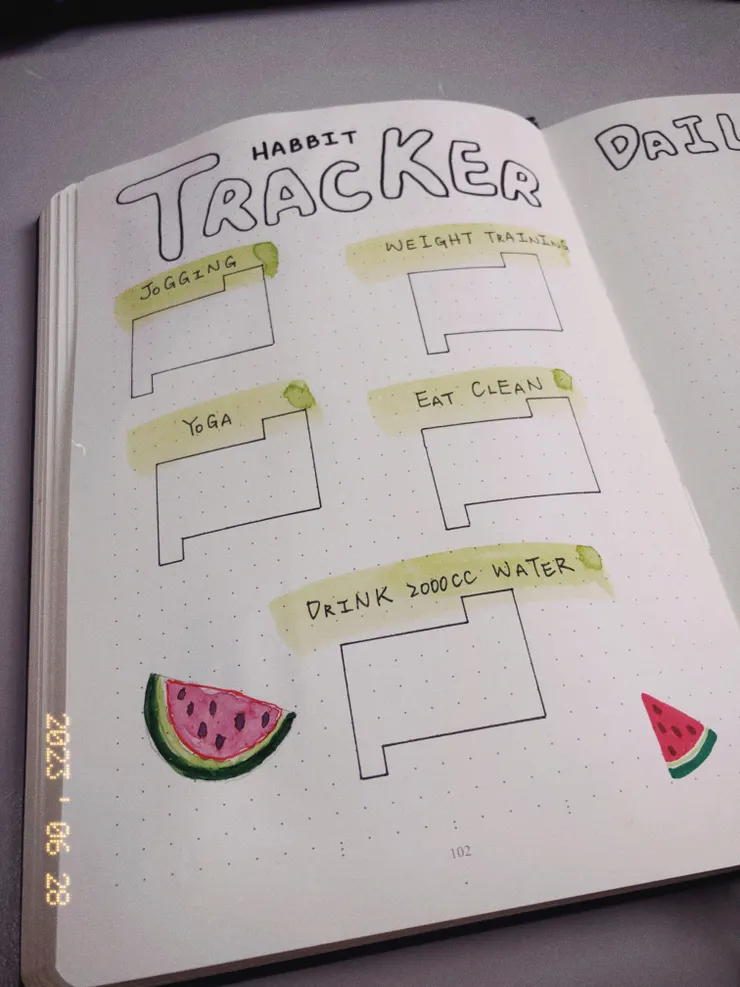 HABBIT
TRACKER
JOGGING
WEIGHT TRAINING
YOGA
EAT CLEAN
DRINK 2000CC WATER
102
DAIL
2023 ' 06 28